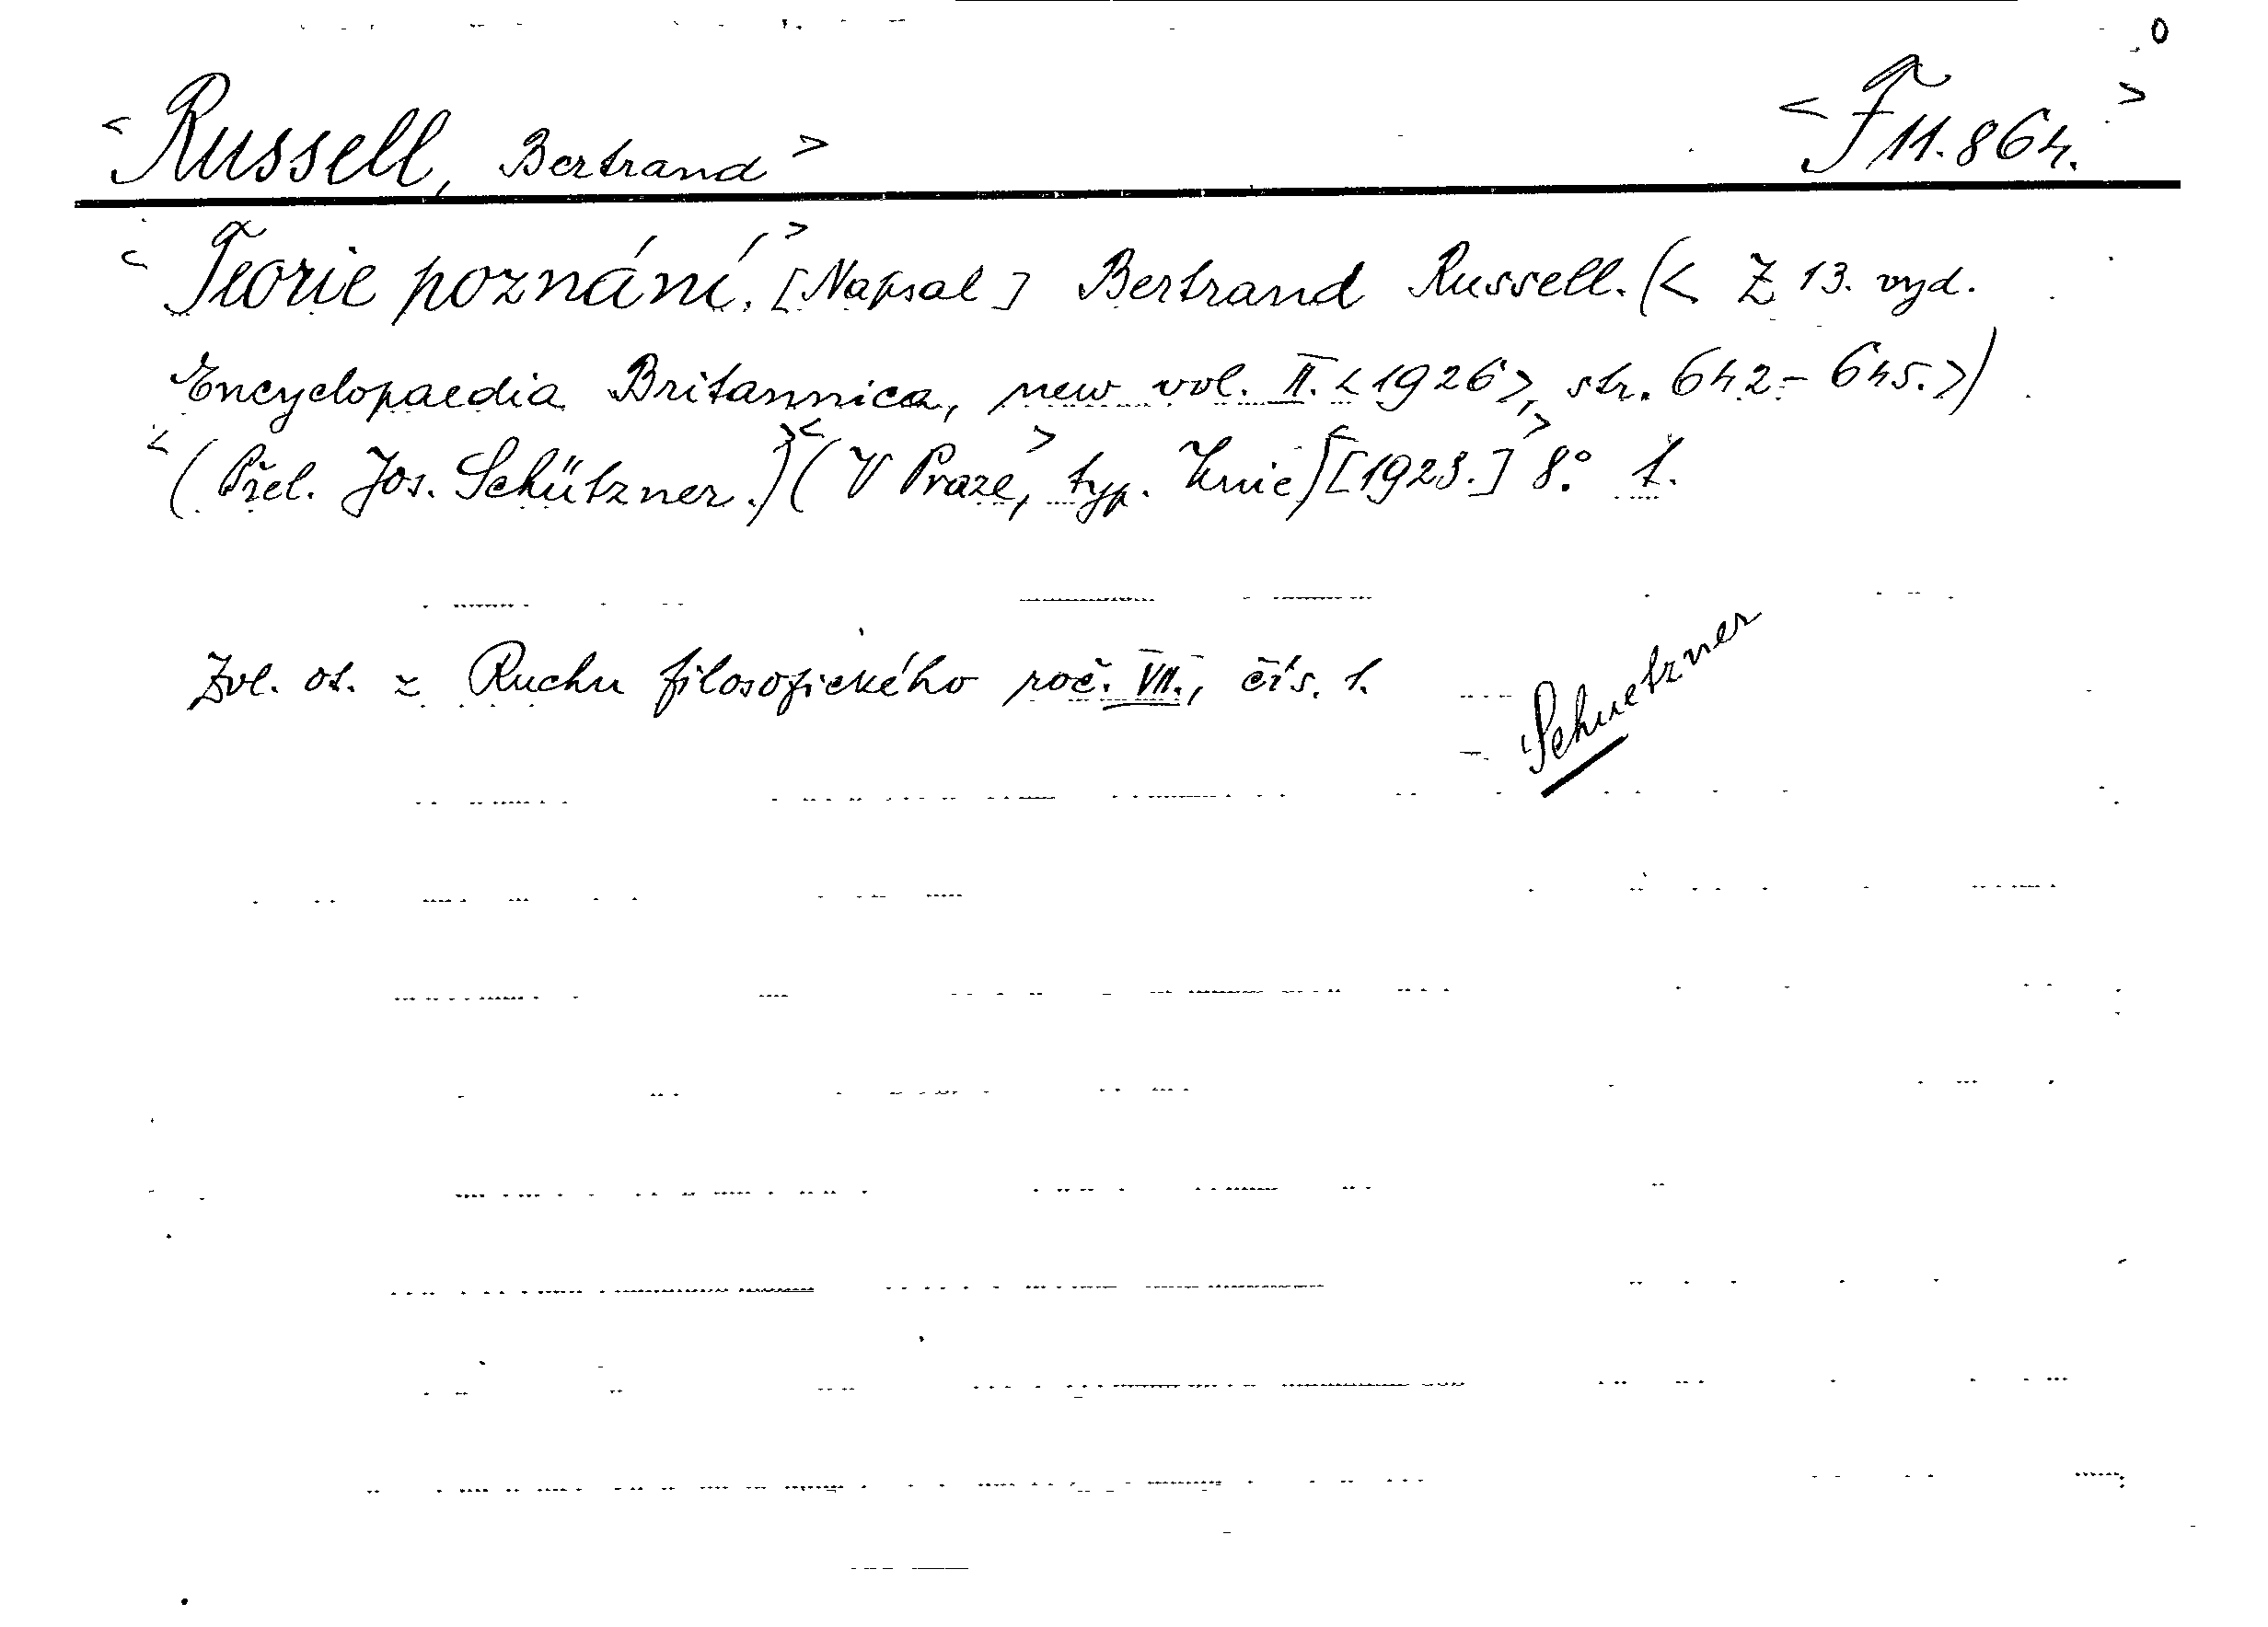 0
<Russell, Bertrand> <F 11.864.>
<Teorie poznání.> [Napsal] Bertrand Russell. (< Z 13. vyd.
Encyclopaedia Britannica, new vol. II. <1926>, str. 642-645.>)
<(Přel. Jos. Schützner.)> <(V Praze,> typ. Knic) <[1928.]> 8.° 1.
Zvl. ot. z Ruchu filosofického roč. VII., čís. 1.
Schuetzner